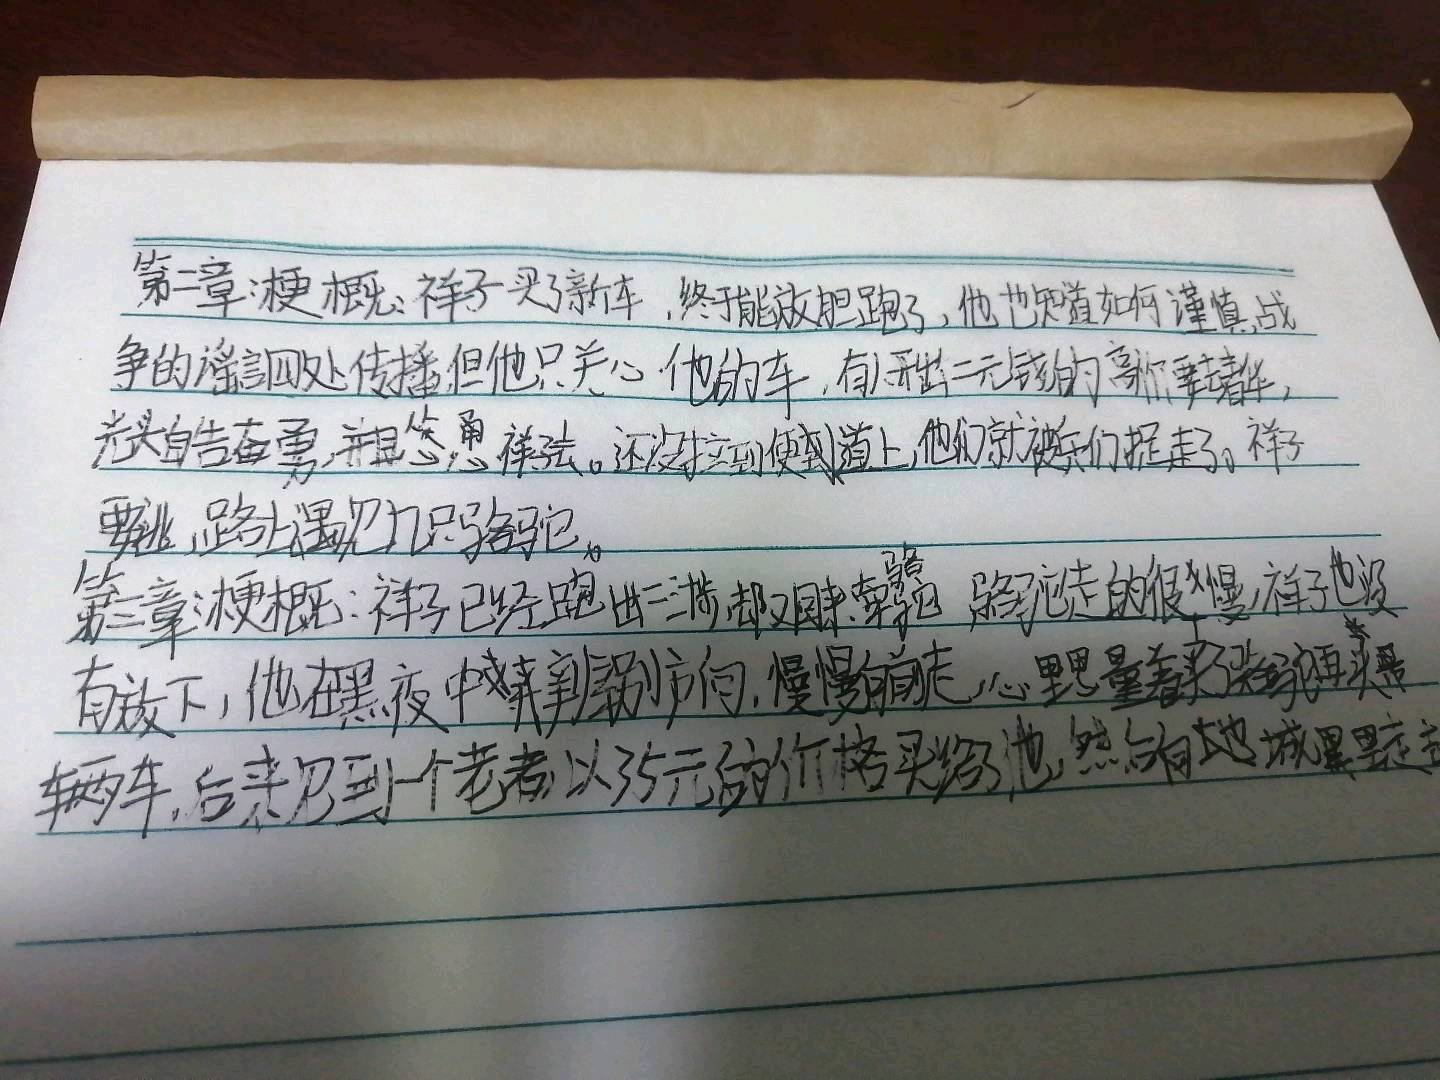 第二章:梗概:祥子买了新车,终于能放胆跑了,他也知道如何谨慎,战
争的谣言四处传播,但他只关心他的车,有人开出二元钱的高价要去清华,
光头自告奋勇,并且怂恿祥子去。还没拉到便到道上,他们就被兵们捉走了。祥子
要逃,路上遇见几只骆驼。
第三章:梗概:祥子已经跑出二三十步,却又回来牵骆驼 骆驼走的很慢,祥子也没
有放下,他在黑夜中辨别方向,慢慢向前走,心里思量着卖了骆驼再买
辆车,后来见到一个老者,以35元的价格买给了他,然后向城里走